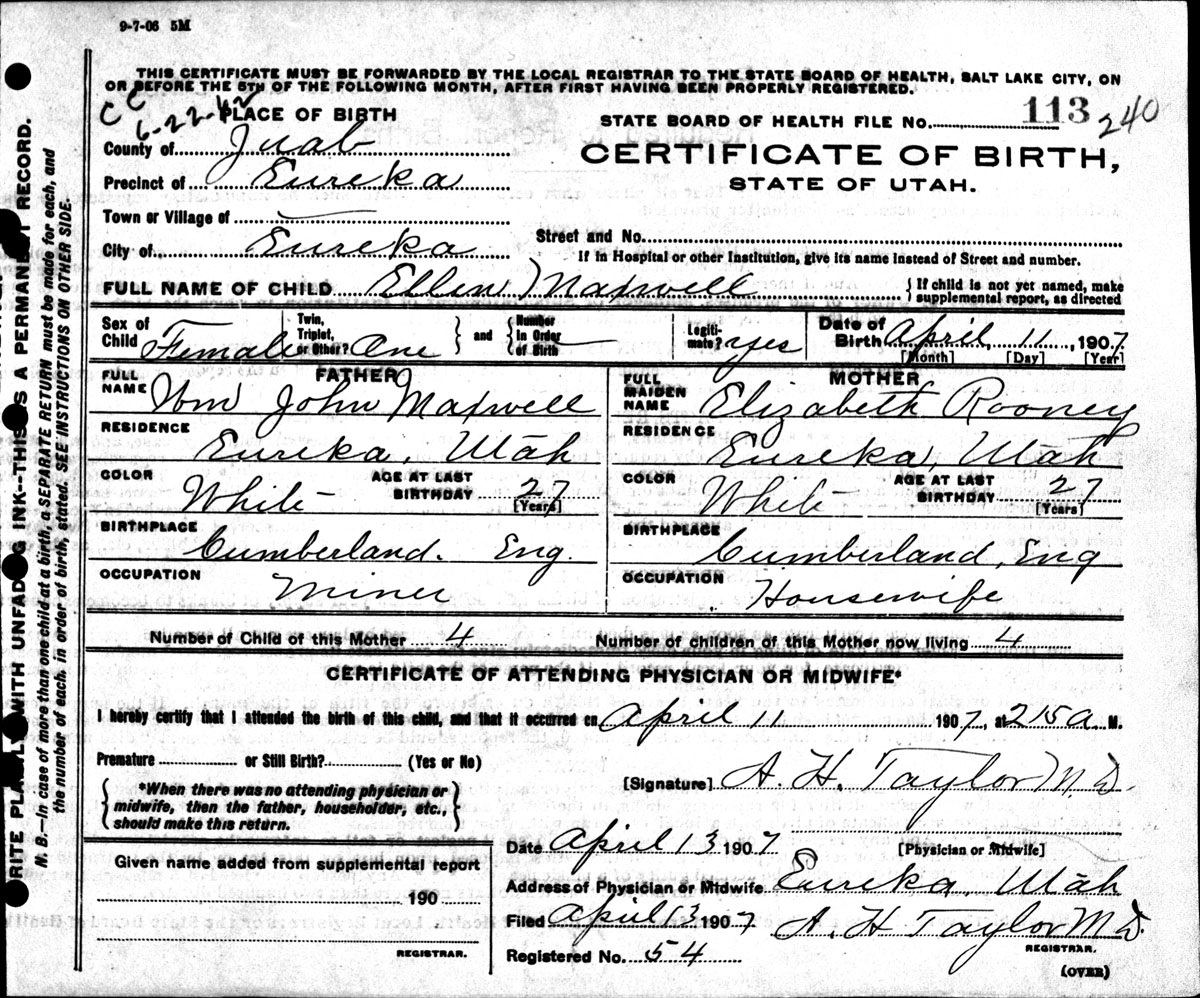 9-7-06 5M
THIS CERTIFICATE MUST BE FORWARDED BY THE LOCAL REGISTRAR TO THE STATE BOARD OF HEALTH, SALT LAKE CITY, ON
OR BEFORE THE 5TH OF THE FOLLOWING MONTH, AFTER FIRST HAVING BEEN PROPERLY REGISTERED.
CC
6-22-42
PLACE OF BIRTH
STATE BOARD OF HEALTH FILE NO. 113 240
County of Juab
CERTIFICATE OF BIRTH,
STATE OF UTAH.
Precinct of Eureka
Town or Village of
City of Eureka
Street and No.
If in Hospital or other Institution, give its name instead of Street and number.
FULL NAME OF CHILD Ellen Maxwell { If child is not yet named, make
supplemental report, as directed
Sex of Child Female
Twin, Triplet, or Other? One } and { Number In Order of Birth —
Legiti-mate? yes
Date of Birth April 11, 1907
[Month] [Day] [Year]
FATHER
FULL NAME Wm John Maxwell
RESIDENCE
Eureka, Utah
COLOR White AGE AT LAST BIRTHDAY 27 [Years]
BIRTHPLACE
Cumberland. Eng.
OCCUPATION
Miner
MOTHER
FULL MAIDEN NAME Elizabeth Rooney
RESIDENCE
Eureka, Utah
COLOR White AGE AT LAST BIRTHDAY 27 [Years]
BIRTHPLACE
Cumberland, Eng
OCCUPATION
Housewife
Number of Child of this Mother 4 Number of children of this Mother now living 4
CERTIFICATE OF ATTENDING PHYSICIAN OR MIDWIFE*
I hereby certify that I attended the birth of this child, and that it occurred on April 11 1907, at 215 a M.
Premature or Still Birth? (Yes or No)
{ *When there was no attending physician or
midwife, then the father, householder, etc.,
should make this return. }
[Signature] A. H. Taylor M.D.
Date April 13 1907 [Physician or Midwife]
Given name added from supplemental report
190
REGISTRAR.
Address of Physician or Midwife Eureka, Utah
Filed April 13 1907 A. H Taylor M D.
REGISTRAR.
Registered No. 54
(OVER)
WITH UNFADING INK--THIS IS A PERMANENT RECORD.
N. B.--In case of more than one child at a birth, a SEPARATE RETURN must be made for each, and
the number of each, in order of birth, stated. SEE INSTRUCTIONS ON OTHER SIDE.